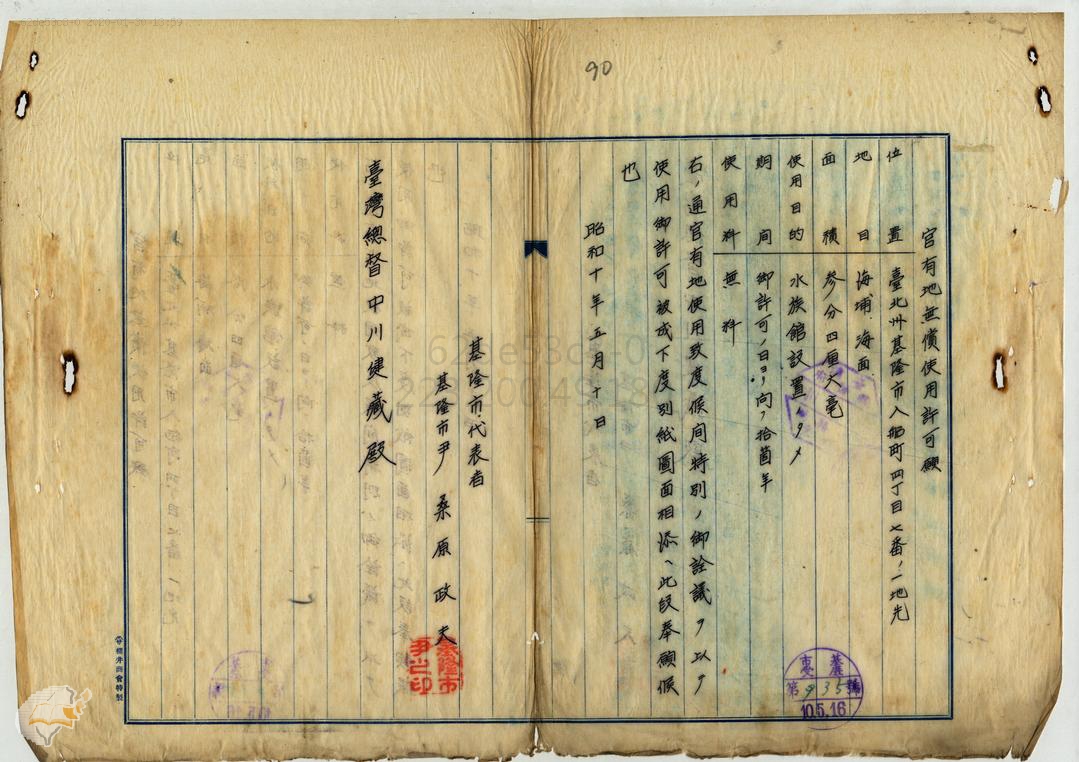 90
官有地無償使用許可願
位置 臺北州基隆市入船町四丁目七番ノ一地先
地目 海埔、海面
面積 參分四厘六毫
使用目的 水族館設置ノタメ
期間 御許可ノ日ヨリ向フ拾箇年
使用料 無料
右ノ通官有地使用致度候間特別ノ御詮議ヲ以テ
使用御許可被成下度別紙圖面相添ヘ此段奉願候
也
昭和十年五月十日
基隆市代表者
基隆市尹 桑原政夫
基隆市尹之印
臺灣總督中川健藏殿
第935號
10.5.16